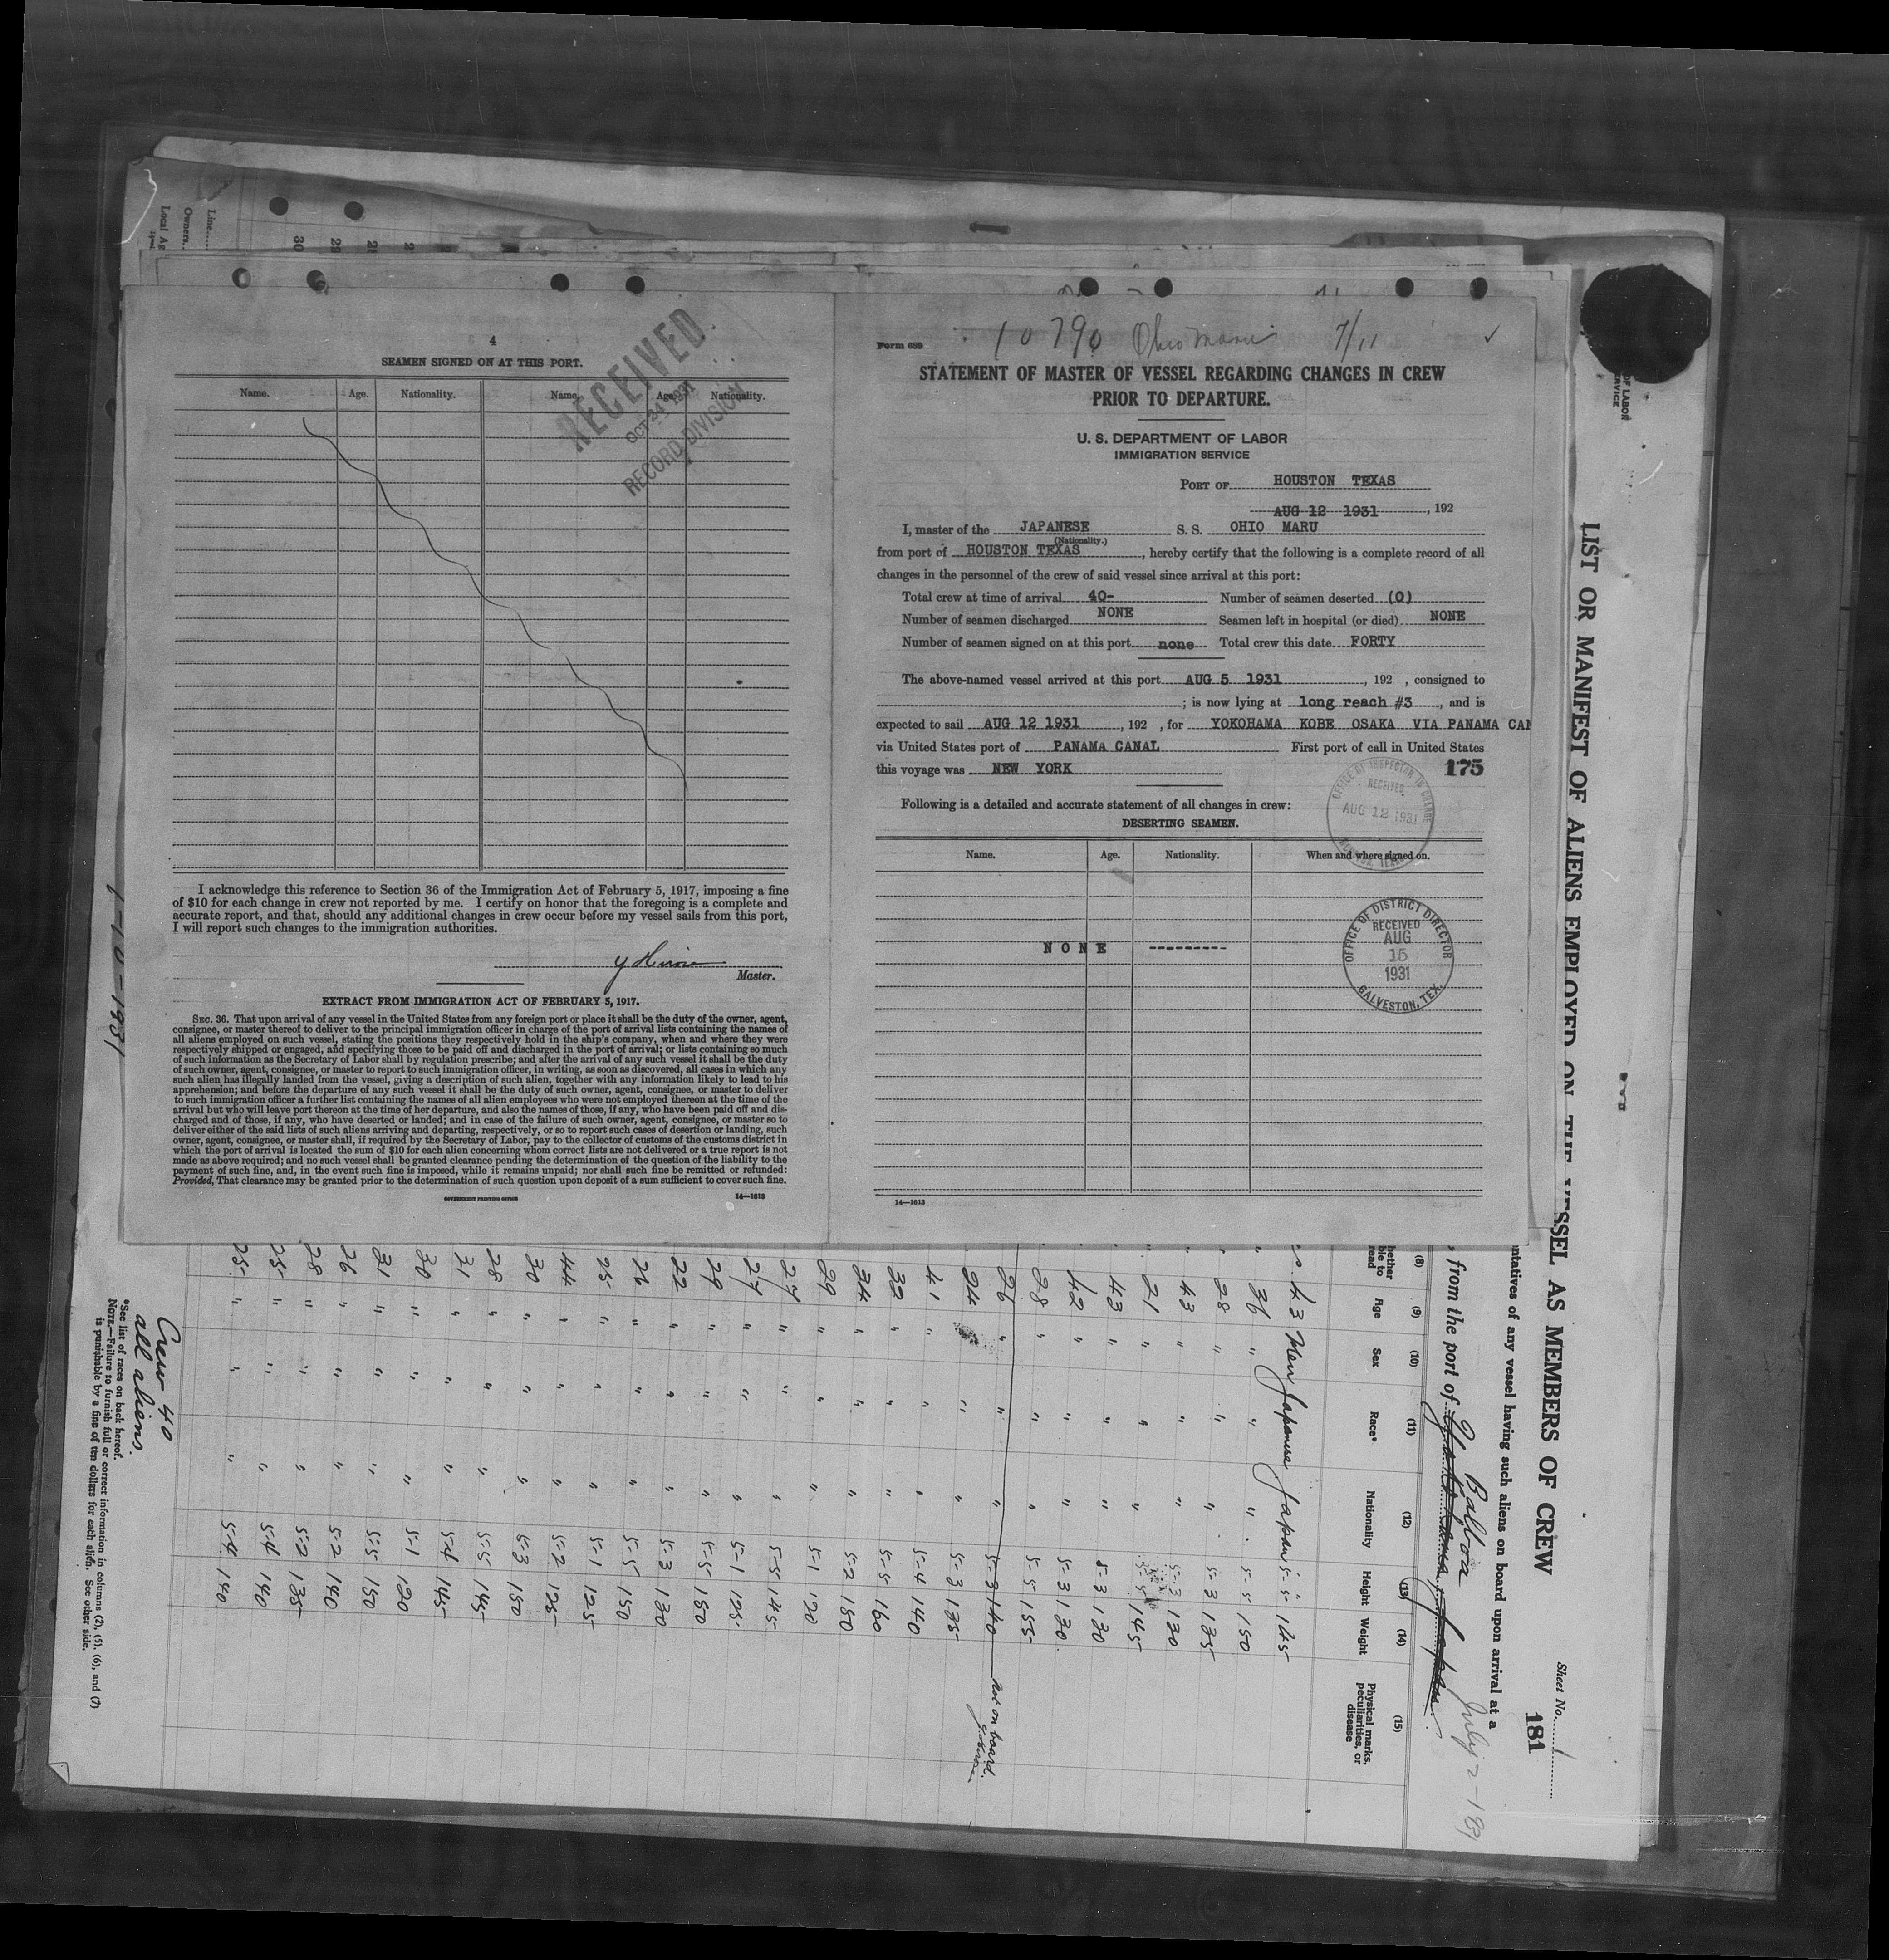 Line
Owners
Local Ag
30
29
4
SEAMEN SIGNED ON AT THIS PORT.
Name. Age. Nationality. Name. Age. Nationality.
RECEIVED
OCT 24 1931
RECORD DIVISION
I acknowledge this reference to Section 36 of the Immigration Act of February 5, 1917, imposing a fine
of $10 for each change in crew not reported by me. I certify on honor that the foregoing is a complete and
accurate report, and that, should any additional changes in crew occur before my vessel sails from this port,
I will report such changes to the immigration authorities.
Master.
EXTRACT FROM IMMIGRATION ACT OF FEBRUARY 5, 1917.
SEC. 36. That upon arrival of any vessel in the United States from any foreign port or place it shall be the duty of the owner, agent,
consignee, or master thereof to deliver to the principal immigration officer in charge of the port of arrival lists containing the names of
all aliens employed on such vessel, stating the positions they respectively hold in the ship's company, when and where they were
respectively shipped or engaged, and specifying those to be paid off and discharged in the port of arrival; or lists containing so much
of such information as the Secretary of Labor shall by regulation prescribe; and after the arrival of any such vessel it shall be the duty
of such owner, agent, consignee, or master to report to such immigration officer, in writing, as soon as discovered, all cases in which any
such alien has illegally landed from the vessel, giving a description of such alien, together with any information likely to lead to his
apprehension; and before the departure of any such vessel it shall be the duty of such owner, agent, consignee, or master to deliver
to such immigration officer a further list containing the names of all alien employees who were not employed thereon at the time of the
arrival but who will leave port thereon at the time of her departure, and also the names of those, if any, who have been paid off and dis-
charged and of those, if any, who have deserted or landed; and in case of the failure of such owner, agent, consignee, or master so to
deliver either of the said lists of such aliens arriving and departing, respectively, or so to report such cases of desertion or landing, such
owner, agent, consignee, or master shall, if required by the Secretary of Labor, pay to the collector of customs of the customs district in
which the port of arrival is located the sum of $10 for each alien concerning whom correct lists are not delivered or a true report is not
made as above required; and no such vessel shall be granted clearance pending the determination of the question of the liability to the
payment of such fine, and, in the event such fine is imposed, while it remains unpaid; nor shall such fine be remitted or refunded:
Provided, That clearance may be granted prior to the determination of such question upon deposit of a sum sufficient to cover such fine.
GOVERNMENT PRINTING OFFICE 14—1613
10790 Ohio Maru 7/11
Form 689
STATEMENT OF MASTER OF VESSEL REGARDING CHANGES IN CREW
PRIOR TO DEPARTURE.
U. S. DEPARTMENT OF LABOR
IMMIGRATION SERVICE
PORT OF HOUSTON TEXAS
AUG 12 1931, 192
I, master of the JAPANESE S. S. OHIO MARU
(Nationality.)
from port of HOUSTON TEXAS, hereby certify that the following is a complete record of all
changes in the personnel of the crew of said vessel since arrival at this port:
Total crew at time of arrival 40- Number of seamen deserted (0)
Number of seamen discharged NONE Seamen left in hospital (or died) NONE
Number of seamen signed on at this port none Total crew this date FORTY
The above-named vessel arrived at this port AUG 5 1931, 192 , consigned to
; is now lying at long reach #3, and is
expected to sail AUG 12 1931, 192 , for YOKOHAMA KOBE OSAKA VIA PANAMA CAN
via United States port of PANAMA CANAL First port of call in United States
this voyage was NEW YORK
175
OFFICE OF INSPECTOR IN CHARGE
RECEIVED
AUG 12 1931
Following is a detailed and accurate statement of all changes in crew:
DESERTING SEAMEN.
Name. Age. Nationality. When and where signed on.
NONE ----------
OFFICE OF DISTRICT DIRECTOR
RECEIVED
AUG
15
1931
GALVESTON, TEX.
14—1613
OF LABOR
SERVICE
Sheet No. 1
181
LIST OR MANIFEST OF ALIENS EMPLOYED ON THE VESSEL AS MEMBERS OF CREW
ntatives of any vessel having such aliens on board upon arrival at a
Balboa July 2-1931
, from the port of Yokohama, Japan
(8) (9) (10) (11) (12) (13) (14) (15)
hether ble to read Age Sex Race* Nationality Height Weight Physical marks, peculiarities, or disease
43 Men Japanese Japan 5-5 145
36 " " " 5-5 150
28 " " " 5-3 135
43 " " " 5-3 130
21 " " " 5-5 145
43 " " " 5-3 130
42 " " " 5-3 130
28 " " " 5-5 155
26 " " " 5-3 140 not on board.
24 " " 5-3 135
41 " " " 5-4 140
32 " " " 5-5 160
34 " " " 5-2 180
29 " " " 5-1 120
27 " " " 5-5 145
27 " " " 5-1 125
29 " " " 5-5 150
22 " " " 5-3 130
26 " " " 5-5 150
25 " " " 5-1 125
44 " " " 5-2 125
30 " " " 5-3 150
28 " " " 5-5 145
31 " " " 5-4 145
30 " " " 5-1 120
31 " " " 5-5 150
26 " " " 5-2 140
28 " " " 5-2 135
25 " " " 5-4 140
25 " " " 5-4 140
Crew 40
all aliens.
*See list of races on back hereof.
NOTE.—Failure to furnish full or correct information in columns (2), (5), (6), and (7)
is punishable by a fine of ten dollars for each alien. See other side.